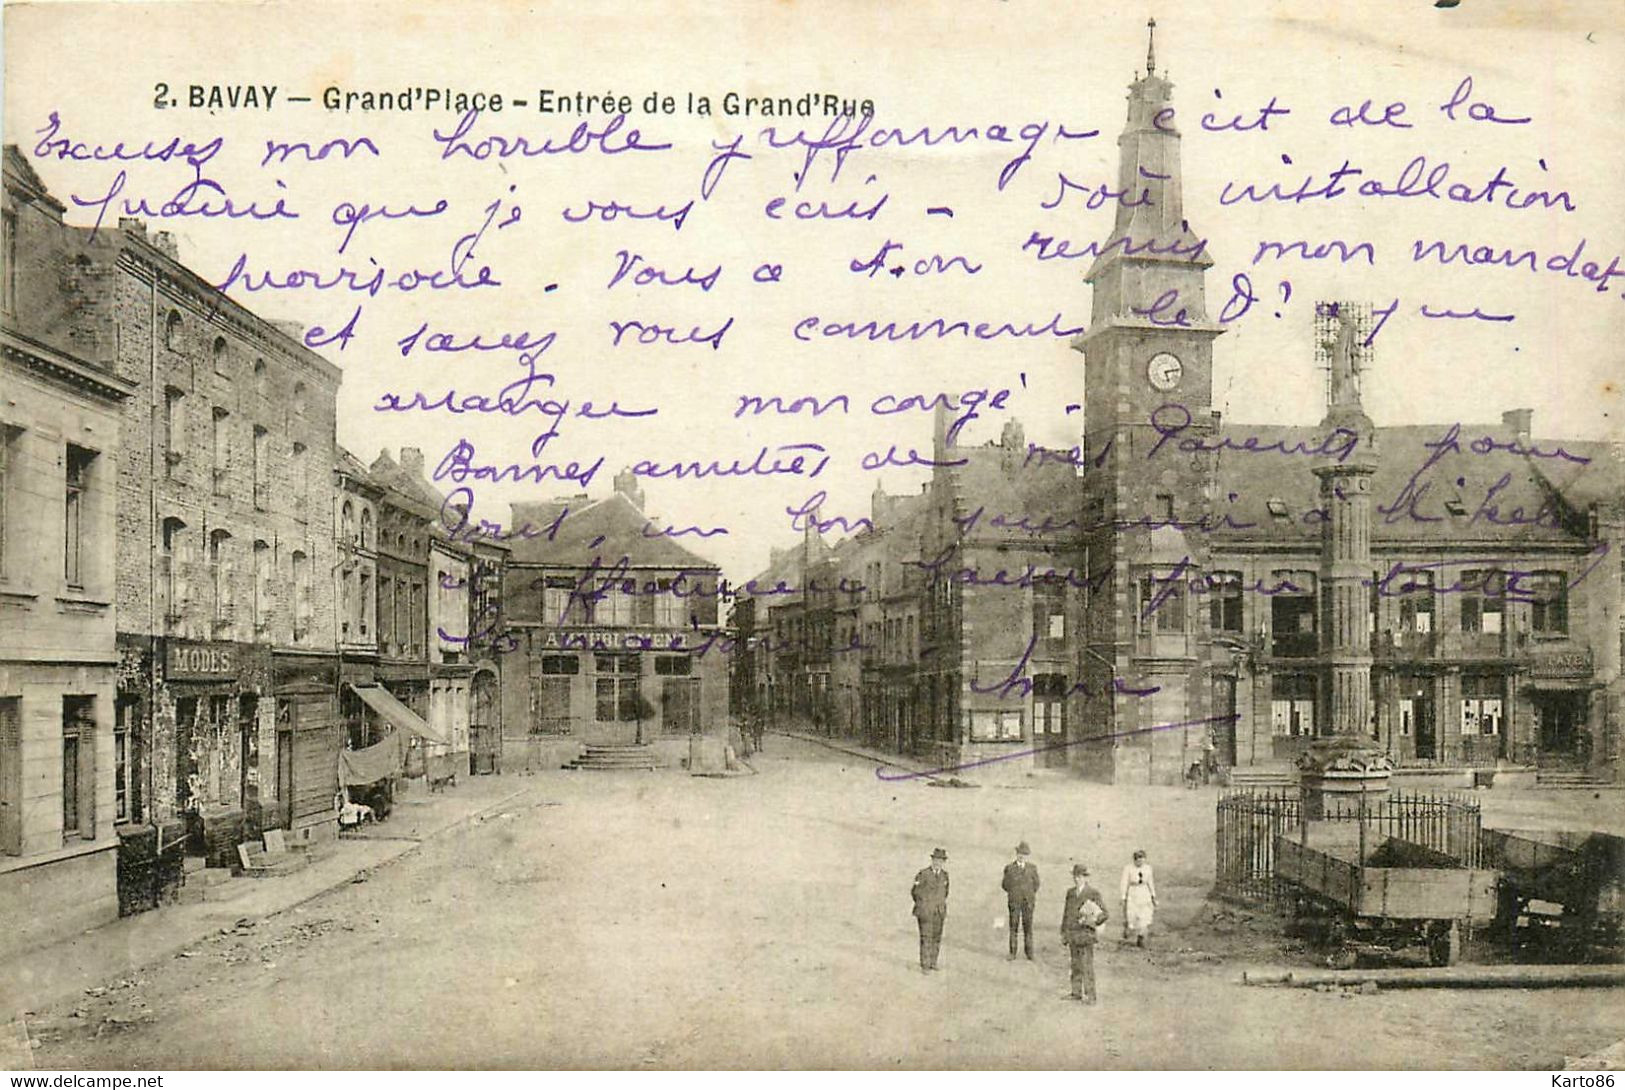 2. BAVAY — Grand'Place - Entrée de la Grand'Rue
Excusez mon horrible griffonnage c'est de la
prairie que je vous écris - d'où installation
provisoire. Vous a t-on remis mon mandat
et savez vous comment le D? a pu
arranger mon congé.
Bonnes amitiés de mes Parents pour
tous, un bon souvenir à
et affectueux baisers pour toute
la maisonnée.
MODES